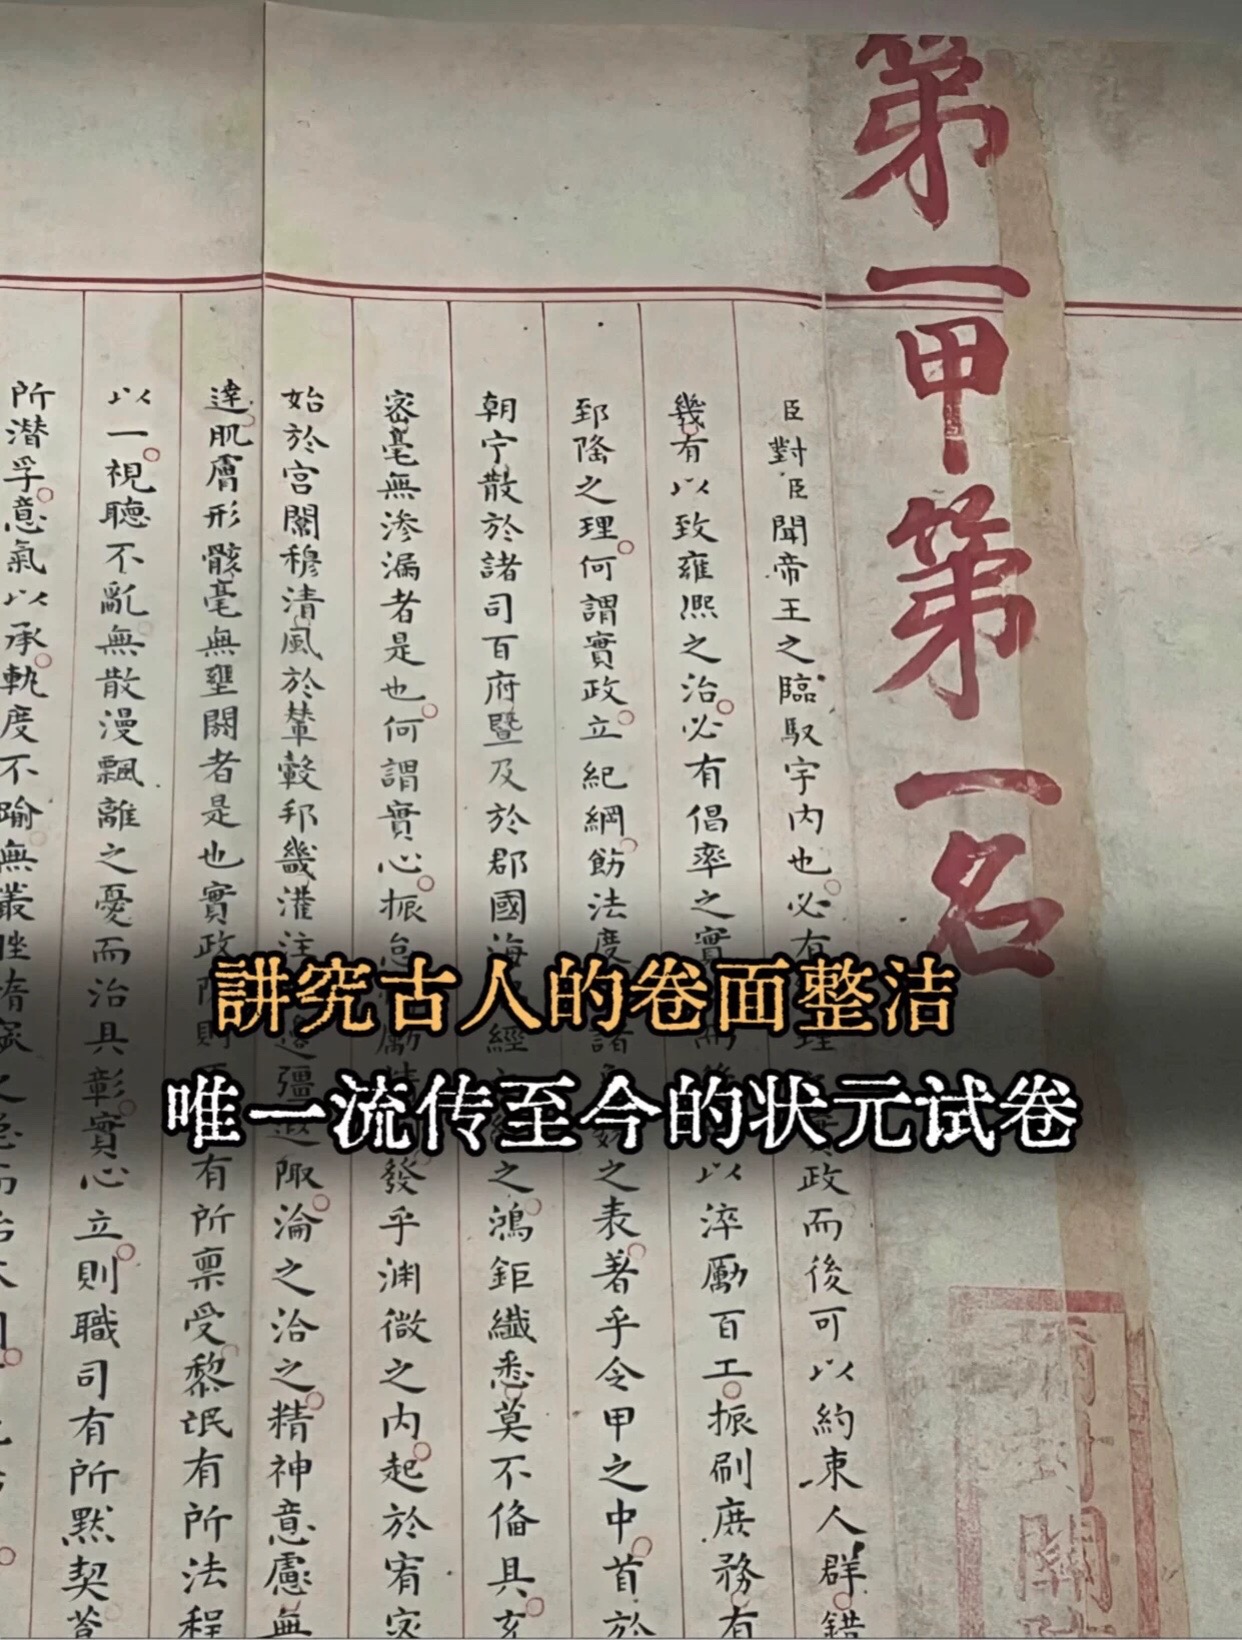 第一甲第一名
臣對臣聞帝王之臨馭宇内也必有理政而後可以約束人群錯
幾有以致雍熙之治必有倡率之實而後以淬勵百工振刷庶務有
郅隆之理何謂實政立紀綱飭法度諸之表著乎令甲之中首於
朝宁散於諸司百府暨及於郡國海經之鴻鉅纖悉莫不偹具充
密毫無滲漏者是也何謂實心振怠勵發乎渊微之内起於宥宓
始於宮闈穆清風於輦轂邦畿灌注邊疆遐陬淪之洽之精神意慮無
達肌膚形骸毫無壅閼者是也實政則有所禀受黎氓有所法程
以一視聽不亂無散漫飄離之憂而治具彰實心立則職司有所默契
所潜孚意氣以承軌度不踰無叢脞
讲究古人的卷面整洁
唯一流传至今的状元试卷